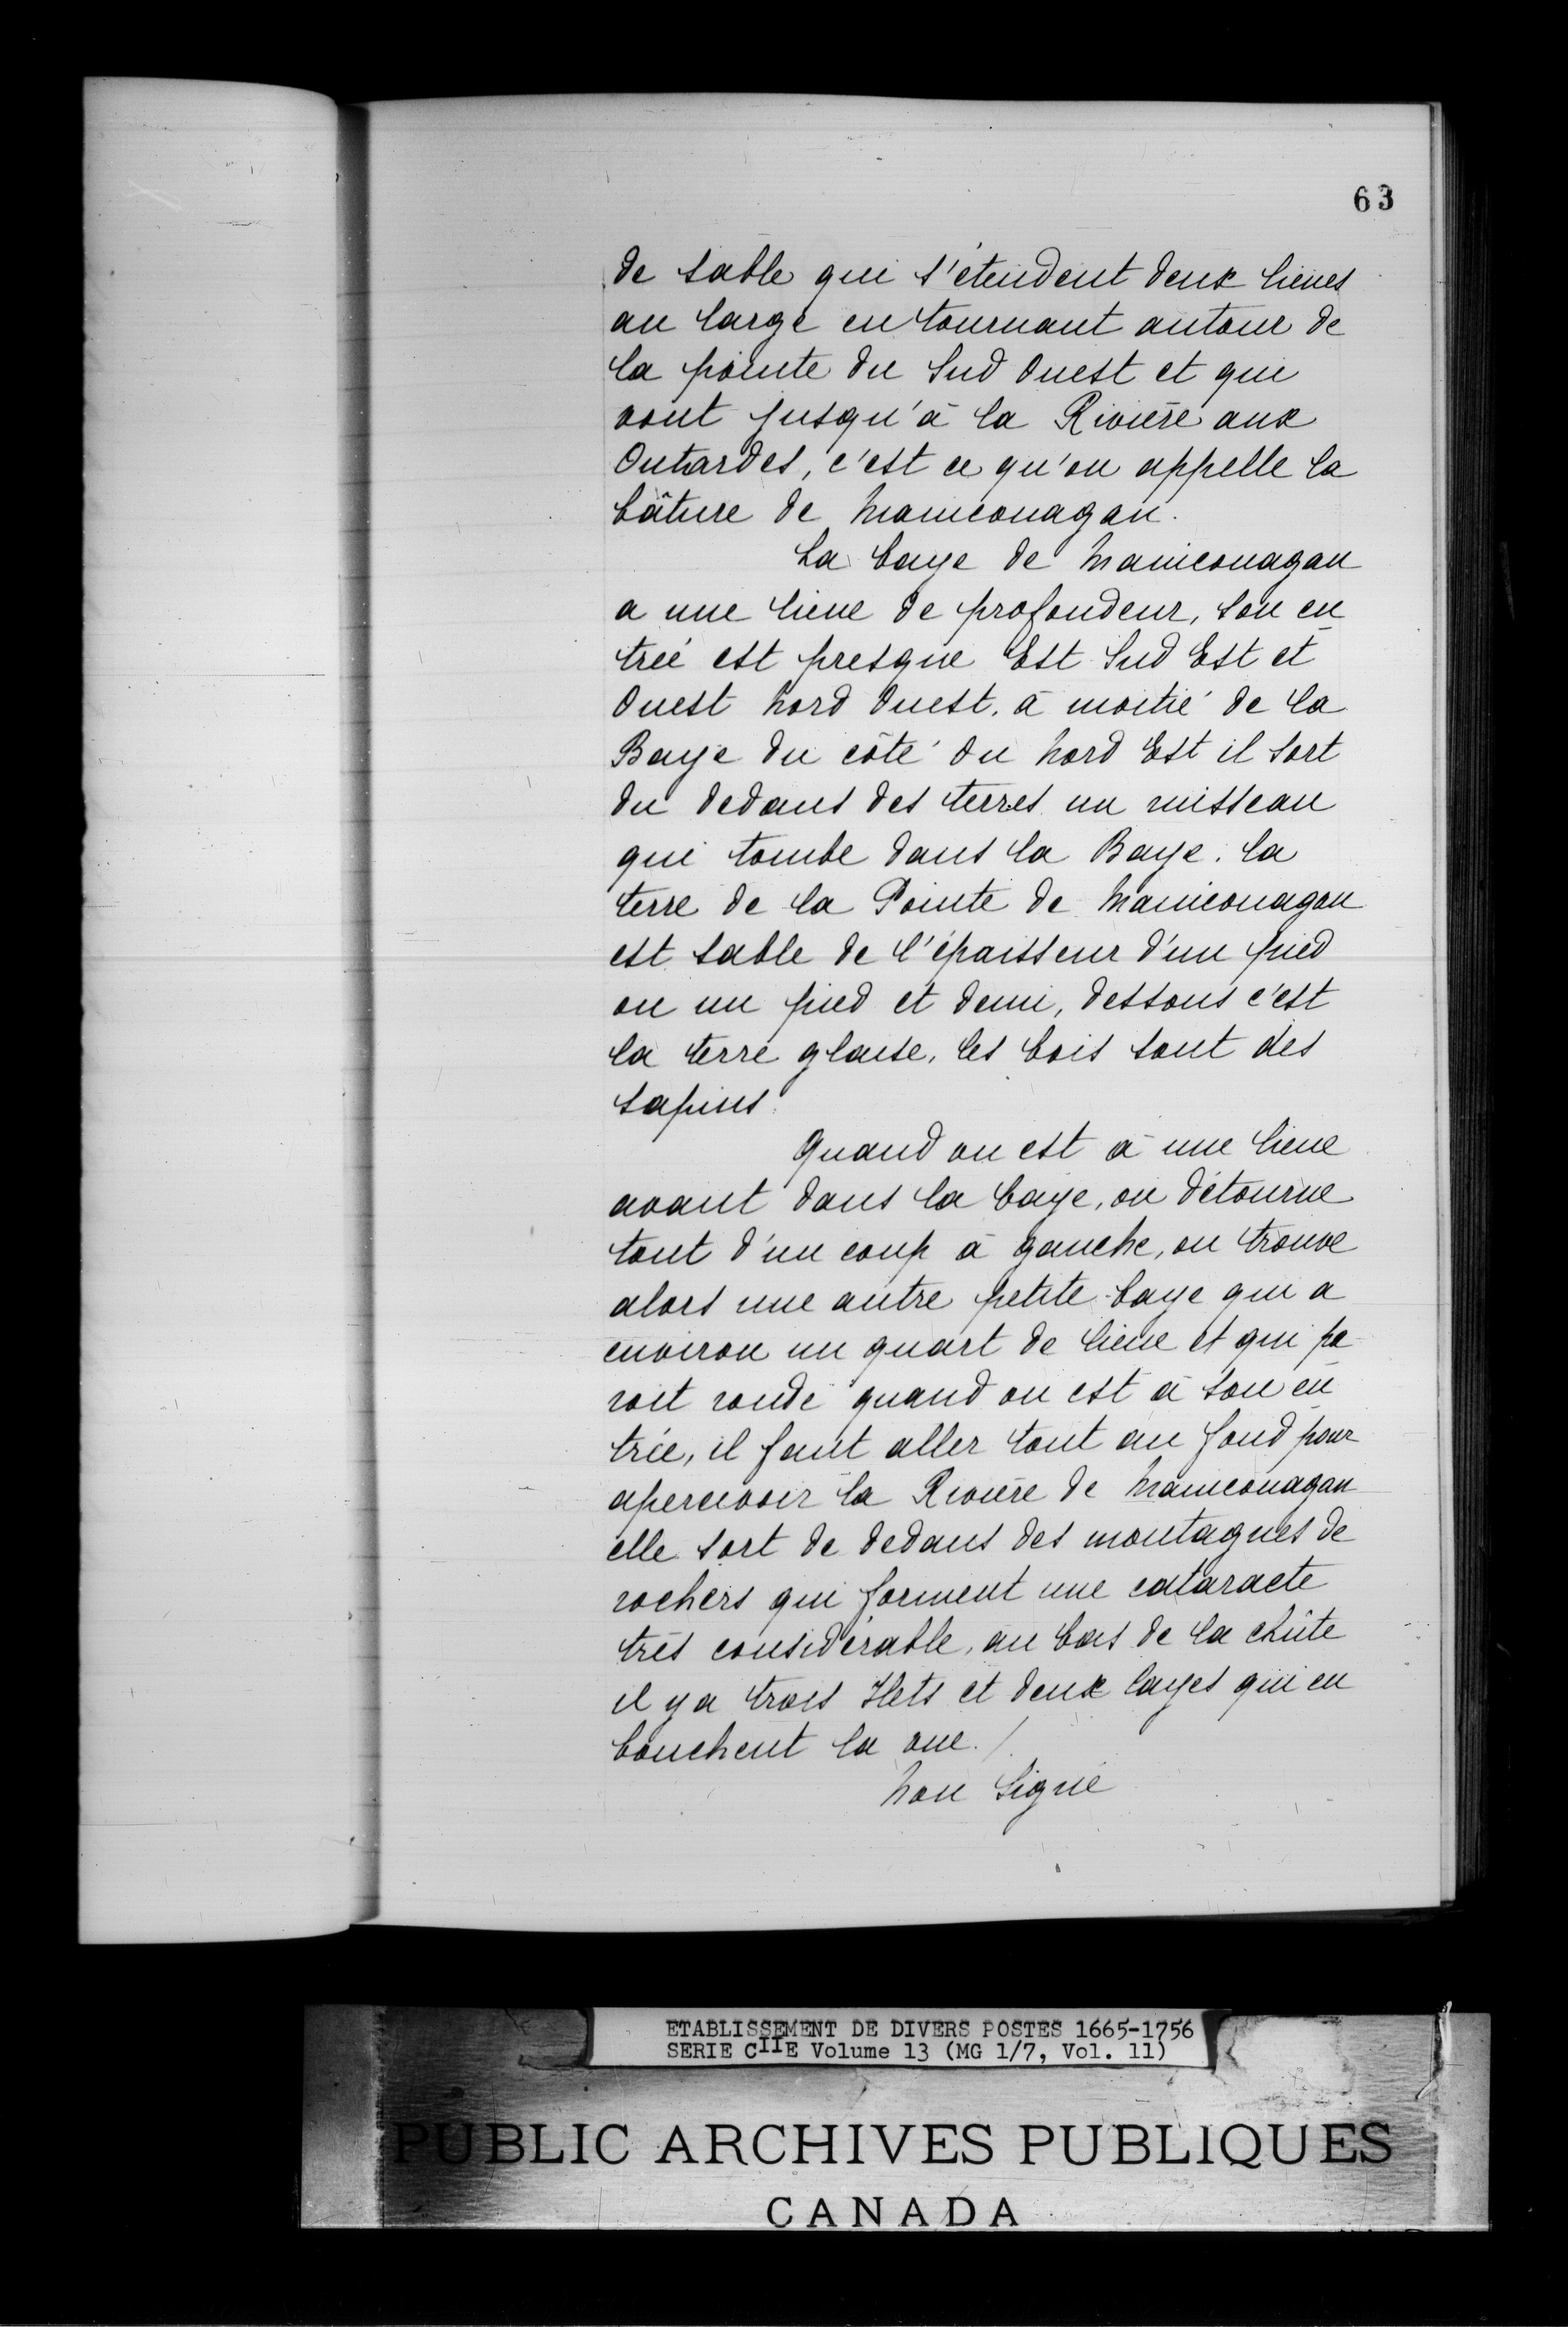 63
de sable qui s'étendent deux lieues
au large en tournant autour de
la pointe du Sud Ouest et qui
vont jusqu'à la Rivière aux
Outardes, c'est ce qu'on appelle la
bâture de Manicouagan.
La baye de Manicouagan
a une lieue de profondeur, son en
trée est presque Est Sud Est et
Ouest Nord Ouest. à moitié de la
Baye du côté du Nord Est il sort
du dedans des terres un ruisseau
qui tombe dans la Baye. la
terre de la Pointe de Manicouagan
est sable de l'épaisseur d'un pied
ou un pied et demi, dessous c'est
la terre glaise, les bois sont des
sapins.
Quand on est à une lieue
avant dans la baye, on détourne
tout d'un coup à gauche, on trouve
alors une autre petite baye qui a
environ un quart de lieue et qui pa
roit ronde quand on est à son en
trée, il faut aller tout au fond pour
apercevoir la Rivière de Manicouagan
elle sort de dedans des montagnes de
rochers qui forment une cataracte
très considérable, au bas de la chûte
il y a trois Ilets et deux cayes qui en
bouchent la vue./.
Non Signé
ETABLISSEMENT DE DIVERS POSTES 1665-1756
SERIE CIIE Volume 13 (MG 1/7, Vol. 11)
PUBLIC ARCHIVES PUBLIQUES
CANADA